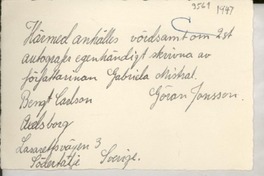 3561 1947
Härmed anhålles vördsamt om 2st
autografer egenhändigt skrivna av
författarinnan Gabriela Mistral.
Bengt Carlson Göran Jonsson.
Axelsborg
Lasarettsvägen 3
Södertälje Sverige.